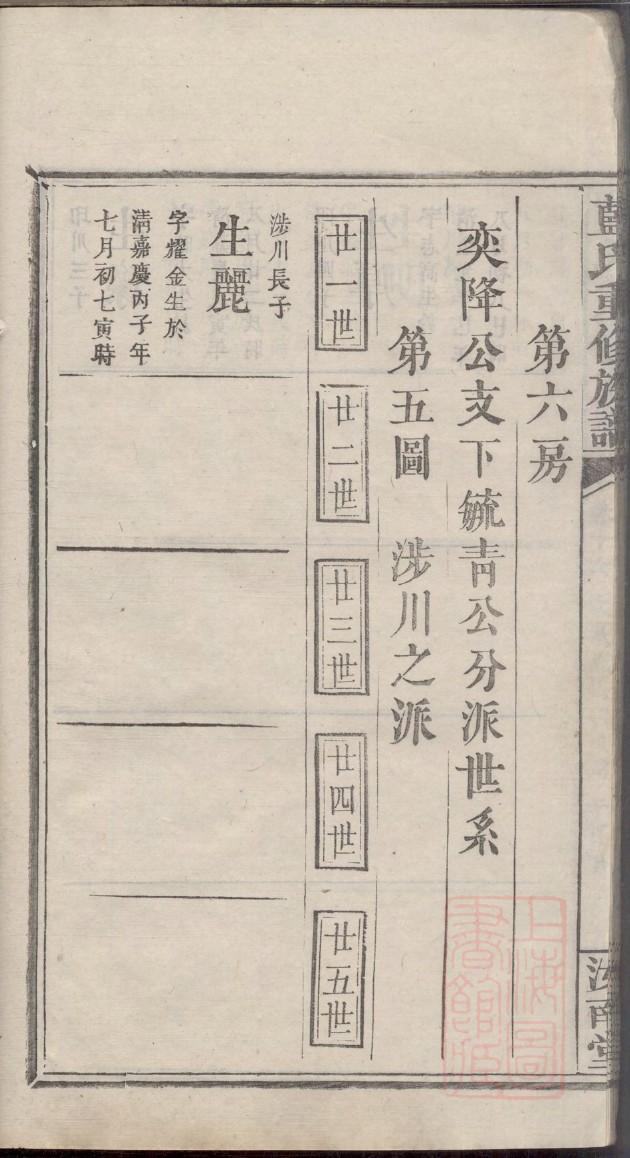 藍氏重修族譜
汝南堂
第六房
奕降公支下毓青公分派世系
第五圖 涉川之派
廿一世
廿二世
廿三世
廿四世
廿五世
涉川長子
生麗
字耀金生於
清嘉慶丙子年
七月初七寅時
上海圖
書館藏